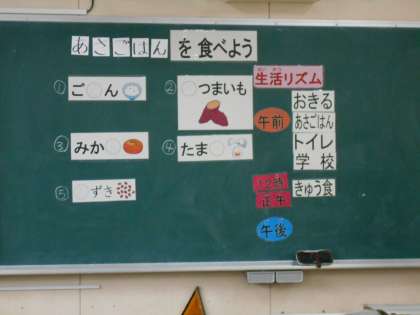 あさごはん を 食べよう
① ご○ん
② ○つまいも
③ みか○
④ たま○
⑤ ○ずき
生活リズム
午前
おきる
あさごはん
トイレ
学校
12時
正午
きゅう食
午後